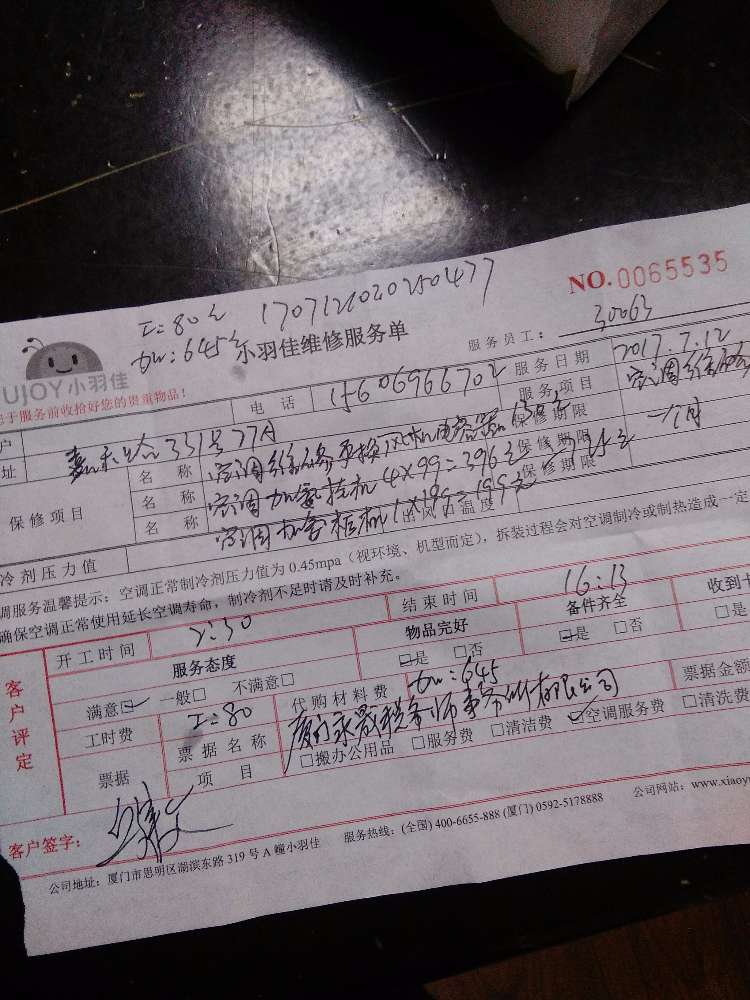 I=80元 1707121020250477
NO.0065535
tW:645元
小羽佳维修服务单
服务员工: 30063
UJOY小羽佳
于服务前收拾好您的贵重物品!
户 电话 服务日期 2017.7.12
址 331号27A 服务项目 空调维修
保修项目
名称 空调维修更换风机电容器 保修期限 一个月
名称 空调加氨挂机4×99=396元 保修期限
名称 空调加氨柜机1×199=199元 保修期限
冷剂压力值 出风口温度
调服务温馨提示:空调正常制冷剂压力值为0.45mpa(视环境、机型而定),拆装过程会对空调制冷或制热造成一定
确保空调正常使用延长空调寿命,制冷剂不足时请及时补充。
客户评定
开工时间 结束时间 16:13
服务态度 物品完好 备件齐全 收到
满意☑ 一般□ 不满意□ 是 □否 是 □否 □是
工时费 I=80 代购材料费 tW:645 票据金额
票据 票据名称 有限公司
项目 □搬办公用品 □服务费 □清洁费 ☑空调服务费 □清洗费
客户签字:
服务热线:(全国)400-6655-888(厦门)0592-5178888 公司网站:www.xiaoyu
公司地址:厦门市思明区湖滨东路319号A幢小羽佳